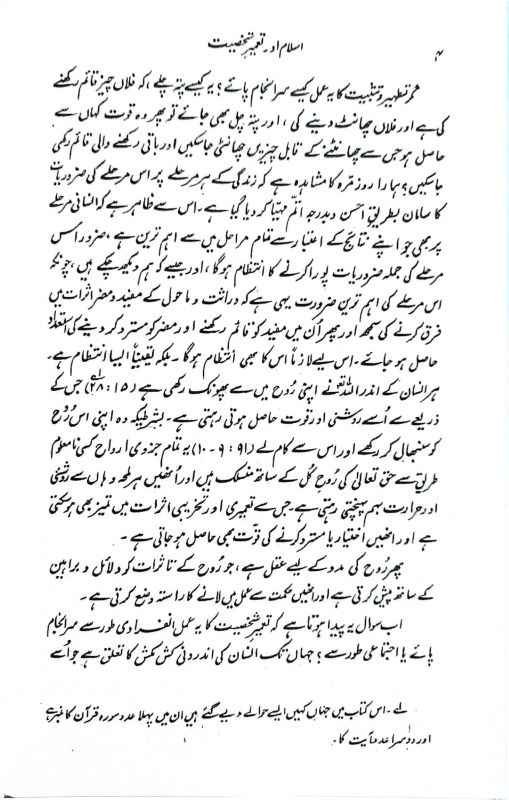 ۴
اسلام اور تعمیرِ شخصیت
مگر تطہیر و تثبیت کا یہ عمل کیسے سرانجام پائے؟ یہ کیسے پتہ چلے، کہ فلاں چیز قائم رکھنے
کی ہے اور فلاں چھانٹ دینے کی، اور پتہ چل بھی جائے تو پھر وہ قوت کہاں سے
حاصل ہو جس سے چھانٹنے کے قابل چیزیں چھانٹی جا سکیں اور باقی رکھنے والی قائم رکھی
جا سکیں؟ ہمارا روز مرّہ کا مشاہدہ ہے کہ زندگی کے ہر مرحلے پر اس مرحلے کی ضروریات
کا سامان بطریقِ احسن و بدرجہ اتم مہیّا کر دیا گیا ہے۔ اس سے ظاہر ہے کہ انسانی مرحلے
پر بھی جو اپنے نتائج کے اعتبار سے تمام مراحل میں سے اہم ترین ہے، ضرور اس
مرحلے کی جملہ ضروریات پورا کرنے کا انتظام ہوگا، اور جیسے کہ ہم دیکھ چکے ہیں، چونکہ
اس مرحلے کی اہم ترین ضرورت یہی ہے کہ وراثت و ماحول کے مفید و مضر اثرات میں
فرق کرنے کی سمجھ اور پھر اُن میں مفید کو قائم رکھنے اور مضر کو مسترد کر دینے کی استعداد
حاصل ہو جائے۔ اس لیے لازماً اس کا بھی انتظام ہوگا۔ بلکہ یقیناً ایسا انتظام ہے۔
ہر انسان کے اندر اللہ تعالیٰ نے اپنی رُوح میں سے پھونک رکھی ہے (۱۵: ۲۸)لہ جس کے
ذریعے اُسے روشنی اور قوت حاصل ہوتی رہتی ہے۔ بشرطیکہ وہ اپنی اس رُوح
کو سنبھال کر رکھے اور اس سے کام لے (۹۱: ۹-۱۰) یہ تمام جزوی ارواح کسی نامعلوم
طریق سے حق تعالیٰ کی رُوحِ کُل کے ساتھ منسلک ہیں اور اُنھیں ہر لمحہ وہاں سے روشنی
اور حرارت بہم پہنچتی رہتی ہے۔ جس سے تعمیری اور تخریبی اثرات میں تمیز بھی ہو سکتی
ہے اور انھیں اختیار یا مسترد کرنے کی قوّت بھی حاصل ہو جاتی ہے۔
پھر رُوح کی مدد کے لیے عقل ہے، جو رُوح کے تاثرات کو دلائل و براہین
کے ساتھ پیش کرتی ہے اور انھیں حکمت سے عمل میں لانے کا راستہ وضع کرتی ہے۔
اب سوال یہ پیدا ہوتا ہے کہ تعمیرِ شخصیت کا یہ عمل انفرادی طور سے سرانجام
پائے یا اجتماعی طور سے؟ جہاں تک انسان کی اندرونی کش مکش کا تعلق ہے جو اُسے
لہ۔ اس کتاب میں جہاں کہیں ایسے حوالے دیے گئے ہیں ان میں پہلا عدد سورہ قرآن کا نمبر ہے
اور دوسرا عدد آیت کا۔